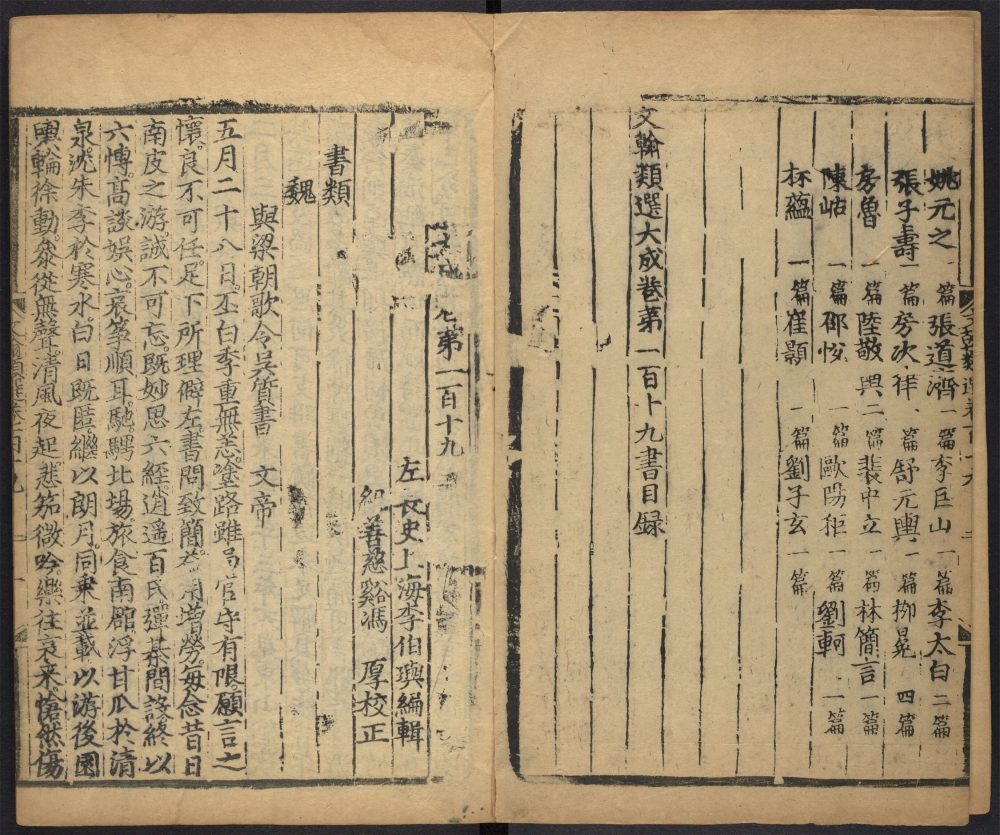 姚元之 一篇 張道濟 一篇 李巨山 一篇 李太白 二篇
張子壽 一篇 房次律 一篇 舒元輿 一篇 柳冕 四篇
房魯 一篇 陸敬輿 二篇 裴中立 一篇 林簡言 一篇
陳岵 一篇 邵悛 一篇 歐陽秬 一篇 劉軻 一篇
林蘊 一篇 崔顥 一篇 劉子玄 一篇
文翰類選大成卷第一百十九書目録
第一百十九
左長史上海李伯璵編輯
善慈谿馮 厚校正
書類
魏
與梁朝歌令吳質書 文帝
五月二十八日丕白季重無恙塗路雖局官守有限願言之
懷良不可任足下所理僻左書問致簡益用增勞每念昔日
南皮之游誠不可忘既妙思六經逍遥百氏彈棊間設終以
六慱高談娛心哀筝順耳馳騁北塲旅食南館浮甘瓜於清
泉沈朱李於寒水白日既匿繼以朗月同乗並載以游後園
輿輪徐動叅從無聲清風夜起悲笳微吟樂往哀来愴然傷